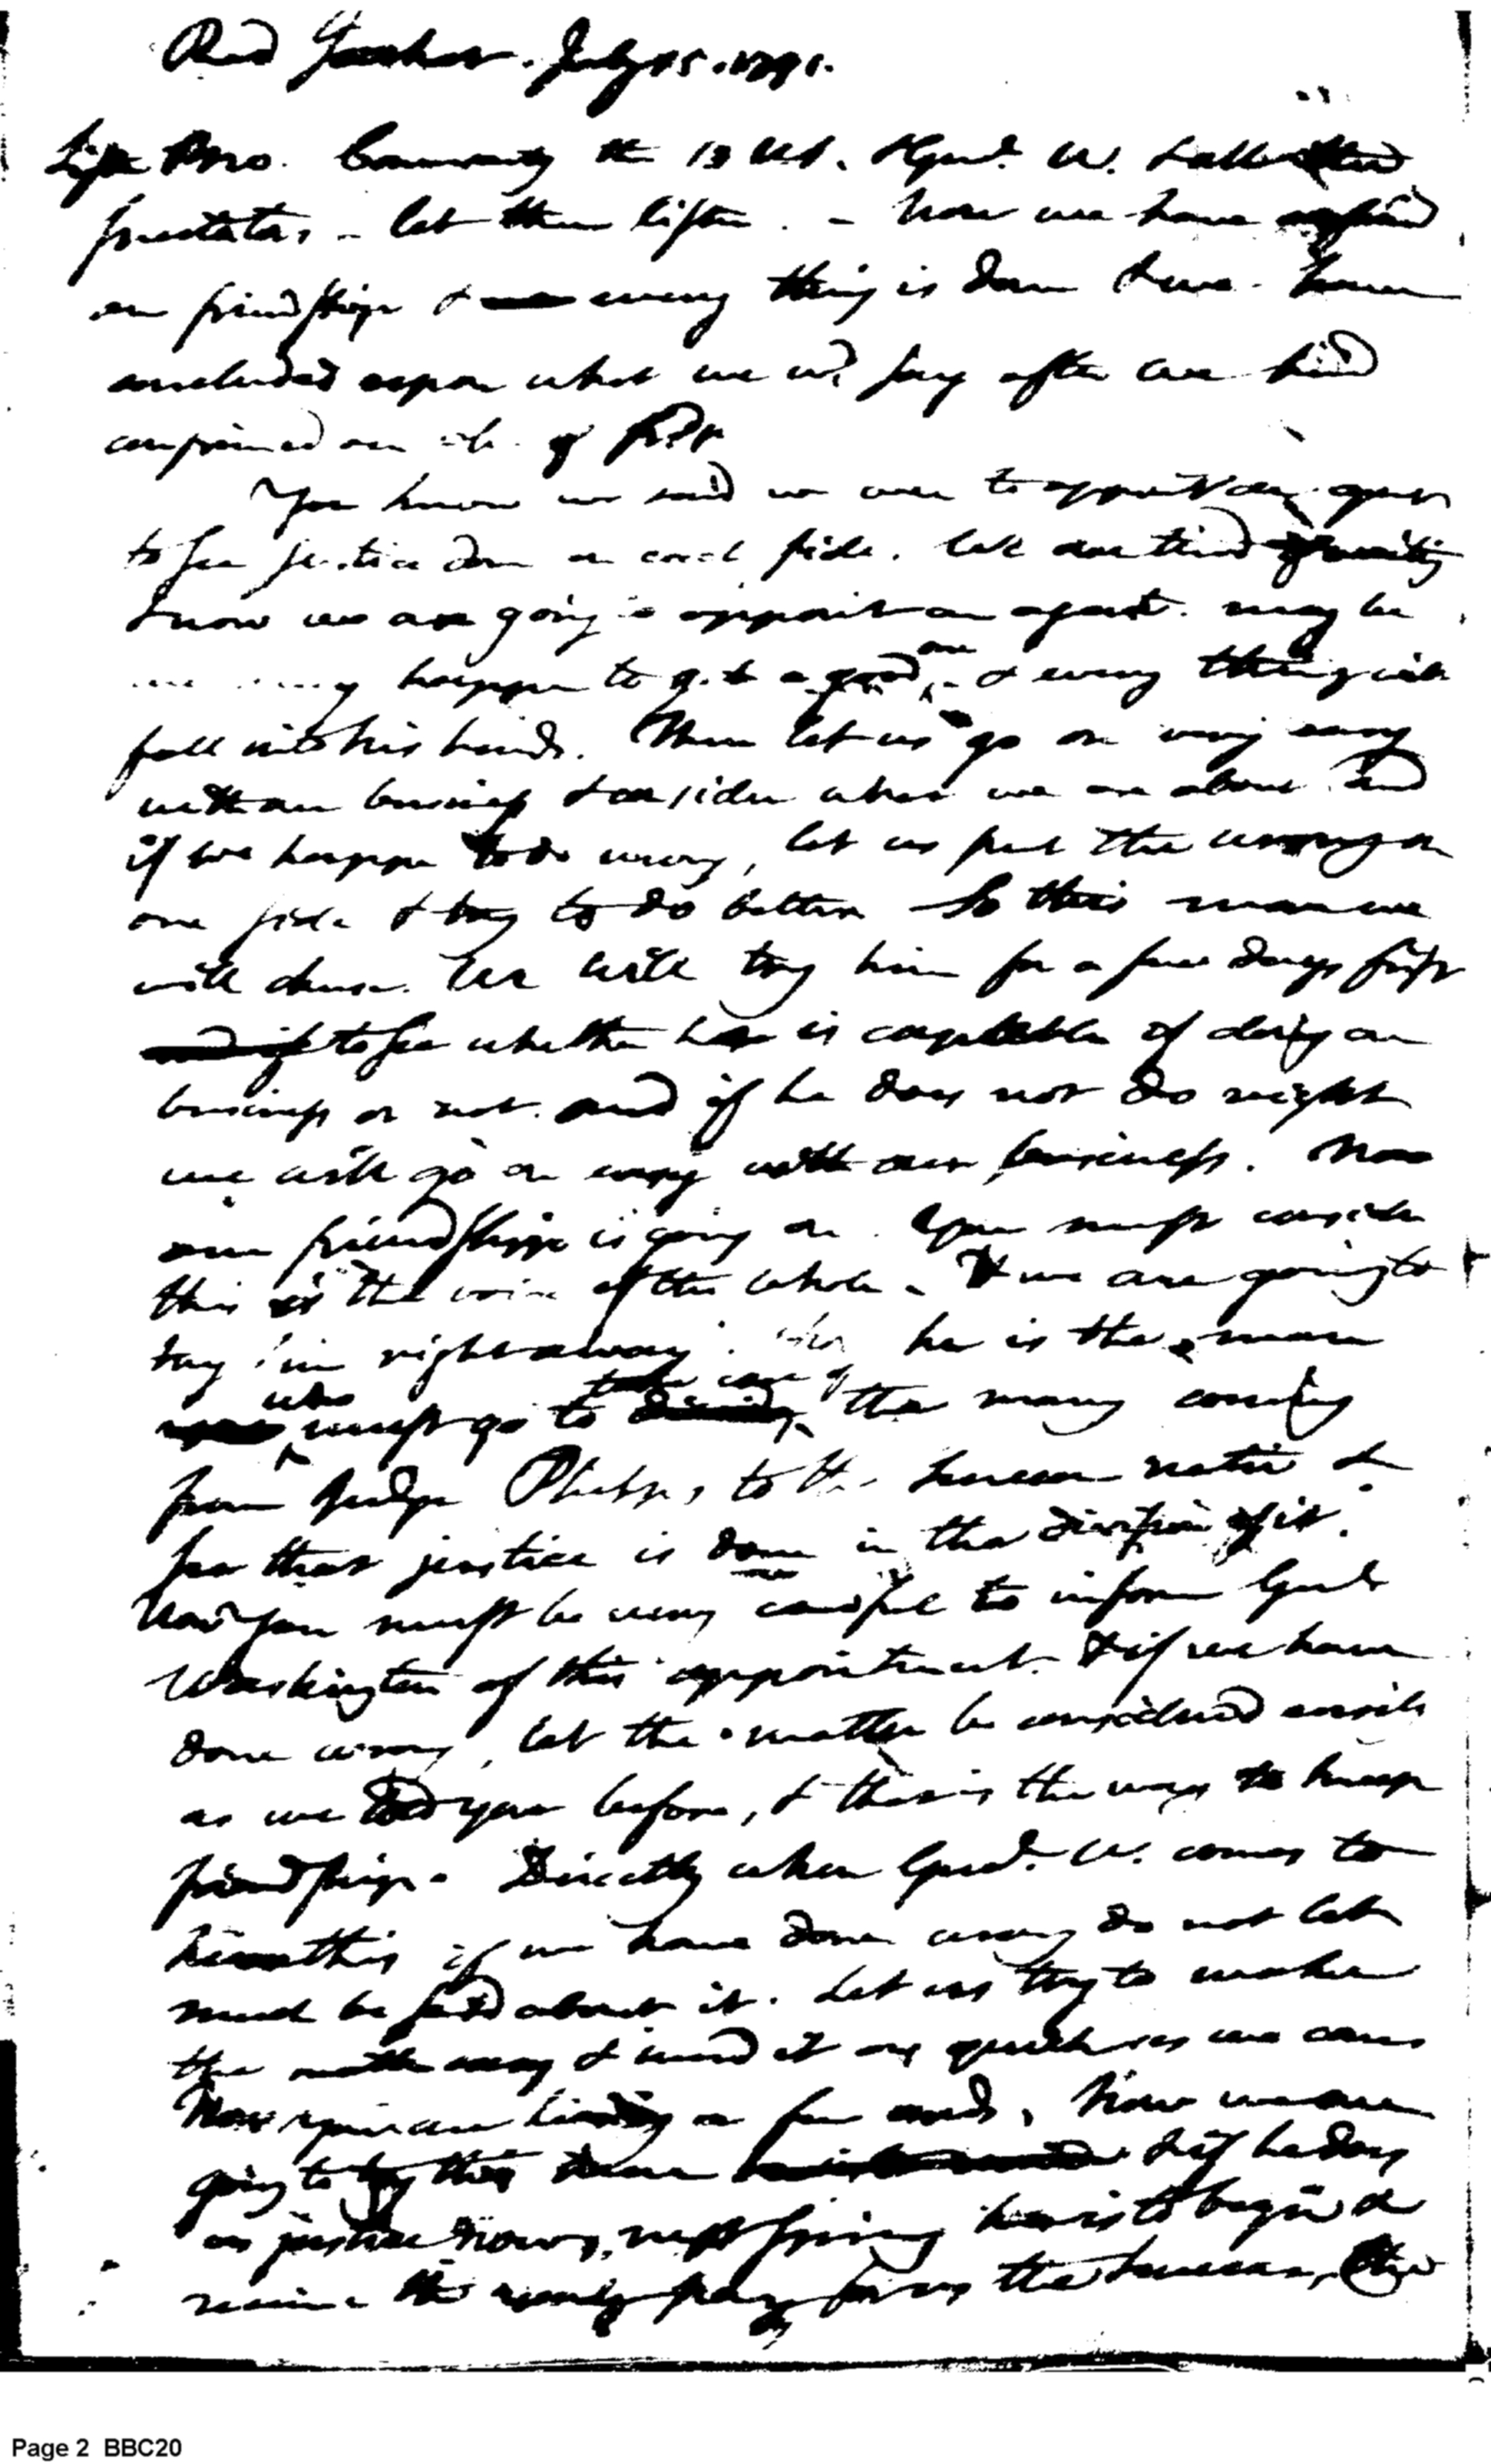 Red Jacket. July 15. 1791.
Bro. the 13 U.S. & Genl. W.
let them listen. – Now we have
our friendship & every thing is done & we have
concluded upon what we wd. say after we had
confirmed our of
You know we said we were to appoint an agent
to see justice done on each side. We are tired of waiting
& now we are going to appoint an agent. may be
we may happen to get a good one & every thing will
fall into his hands. Then let us go on very easy
with our business & consider what we are about and
if we happen to do wrong, let us put the wrong on
one side & try to do better So this man we
will chuse. We will try him for a few days first
to see whether he is capable of doing our
business or not. and if he does not do right
we will go on easy with our business. Now
our friendship is going on. You must consider
this is the voice of the whole. & we are going to
try him right away. he is the man
who must go to take care of the money coming
from Judge Phelps, to the Seneca nation &
see that justice is done in the division of it.
Now you must be very careful to inform Genl
Washington of this appointment. & if we have
done wrong, let the matter be considered easily
as we told you before, & this is the way to keep
friendship. Directly when Genl. W. comes to
hear this if we have done wrong do not let
much be said about it. Let us try to make
the matter easy & mend it as quick as we can
Now you are a few words. Now we are
going to try this & if he does
us justice now, next spring he is to begin &
receive the yearly pay for us the Senecas, the
Page 2 BBC20